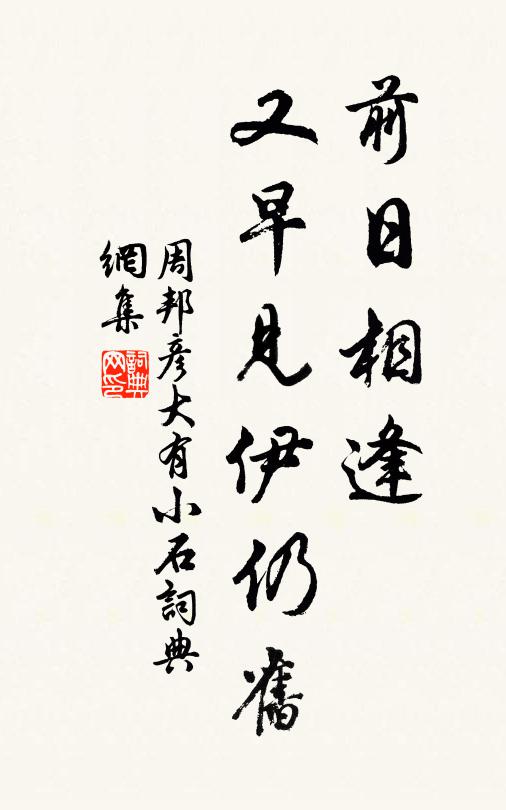 前日相逢
又早見伊仍舊
周邦彥大有小石詞典
網集
詞典
网印